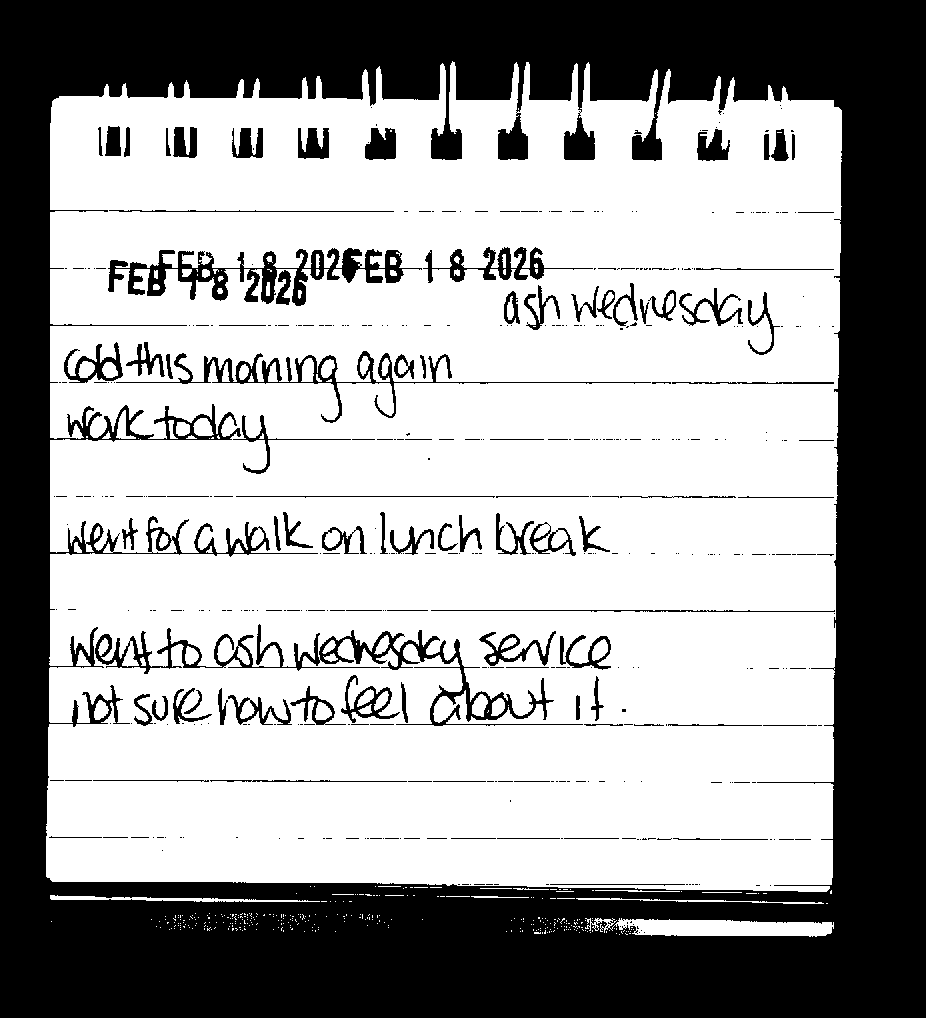 FEB 18 2026 FEB 18 2026
FEB 18 2026
ash wednesday
cold this morning again
work today
went for a walk on lunch break
went to ash wednesday service
not sure how to feel about it.